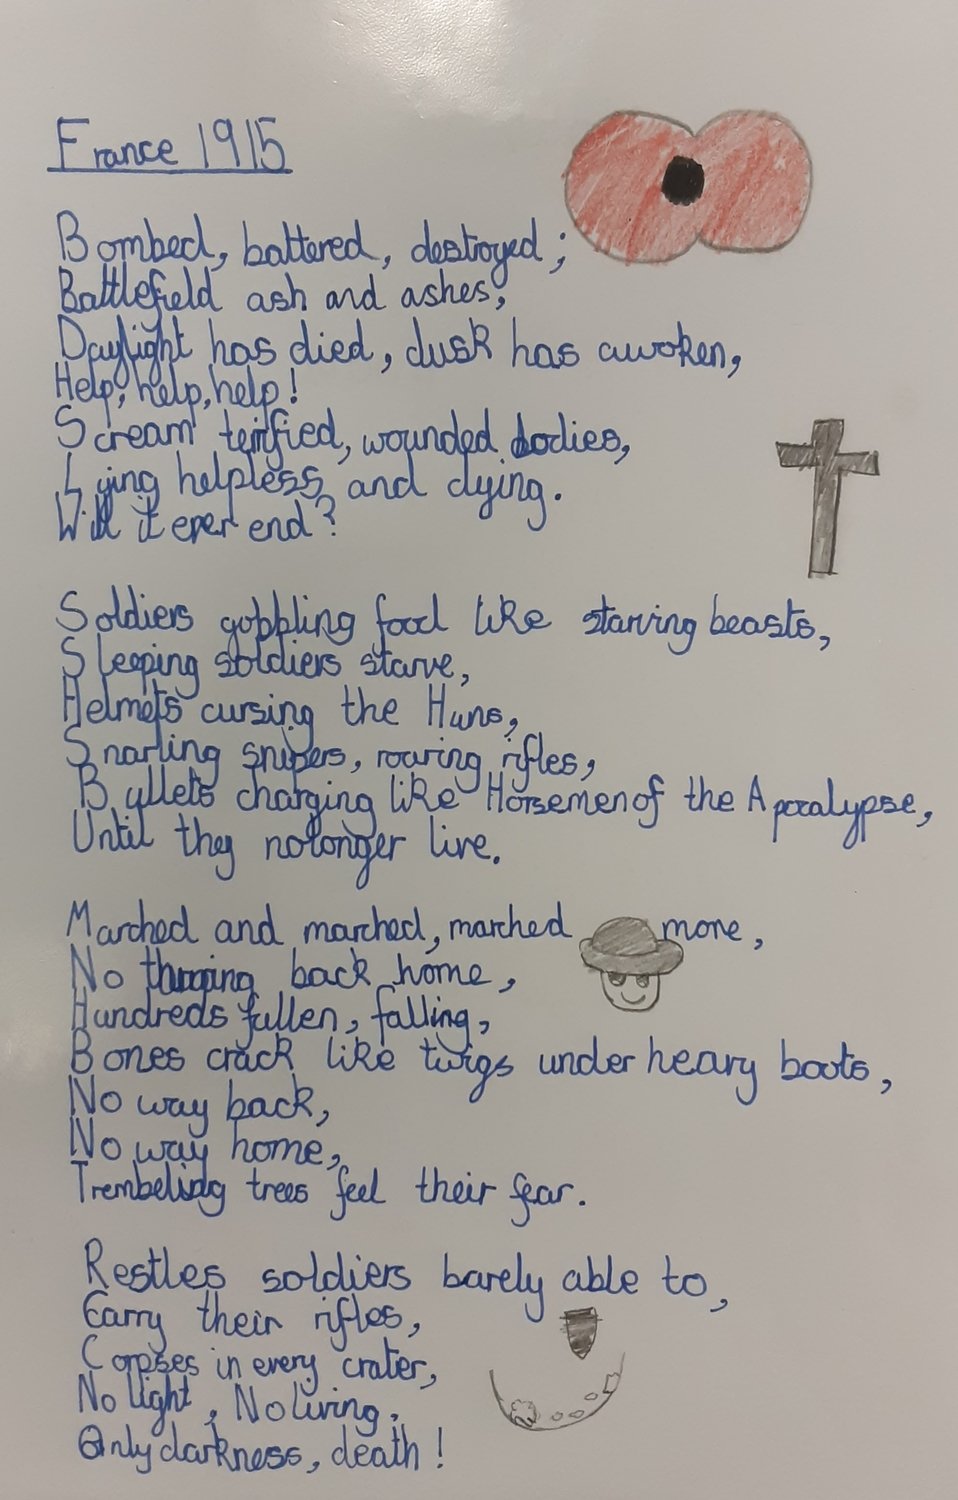 France 1915
Bombed, battered, destroyed;
Battlefield ash and ashes,
Daylight has died, dusk has awoken,
Help, help, help!
Scream terrified, wounded bodies,
Lying helpless and dying.
Will it ever end?
Soldiers gobbling food like starving beasts,
Sleeping soldiers starve,
Helmets cursing the Huns,
Snarling snipers, roaring rifles,
Bullets charging like Horsemen of the Apocalypse,
Until they no longer live.
Marched and marched, marched more,
No back home,
Hundreds fallen, falling,
Bones crack like twigs under heavy boots,
No way back,
No way home,
Trembeling trees feel their fear.
Restles soldiers barely able to,
Carry their rifles,
Corpses in every crater,
No light, No living,
Only darkness, death!